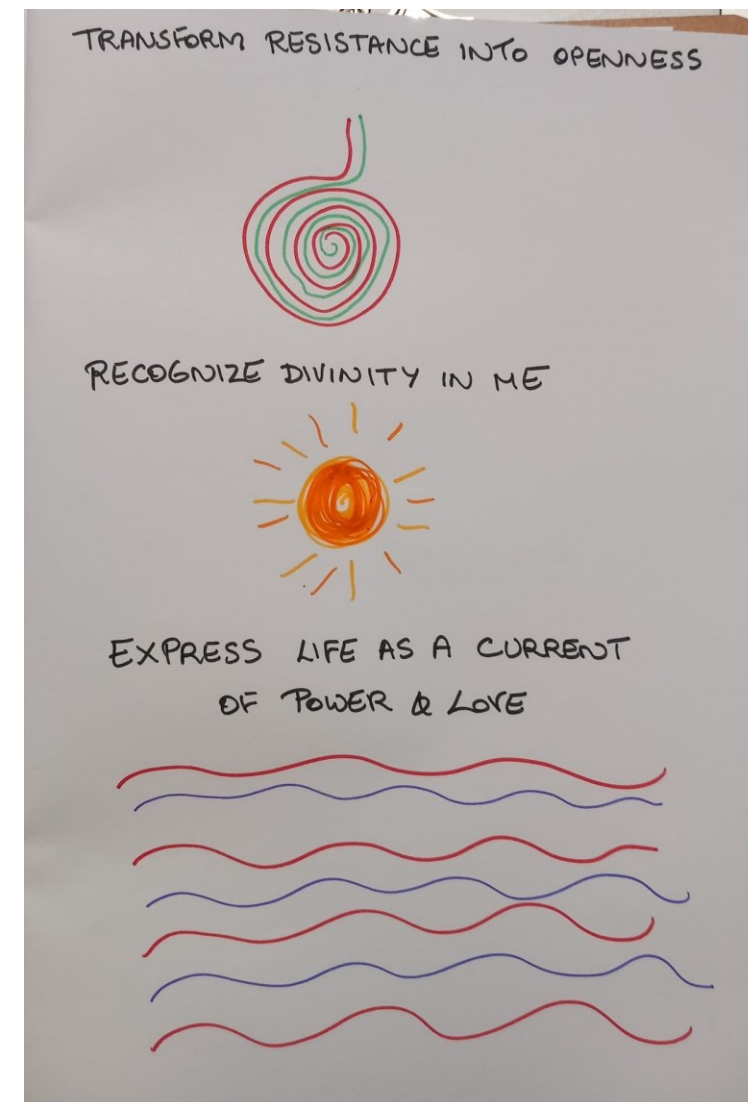 TRANSFORM RESISTANCE INTO OPENNESS
RECOGNIZE DIVINITY IN ME
EXPRESS LIFE AS A CURRENT
OF POWER & LOVE